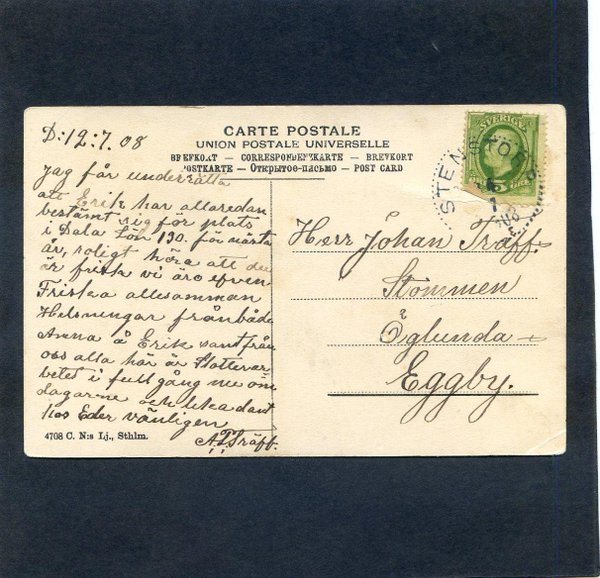 D: 12:7.08
CARTE POSTALE
UNION POSTALE UNIVERSELLE
BREFKORT — CORRESPONDENZKARTE — BREVKORT
POSTKARTE — Открытое-письмо — POST CARD
SVERIGE
STENSTORP
Jag får underrätta
att Erik har allaredan
bestämt sig för plats
i Dala Lön 190. för nästa
år, roligt höra att du
är frisk vi äro efven
Friska allesamman
Helsningar från både
Anna å Erik samt från
oss alla här är Slotterar
betet i full gång nu om
dagarne och lika dant
hos Eder vänligen
A. Träff.
Herr Johan Träff.
Stommen
Öglunda
Eggby.
4708 C. N:s Lj., Sthlm.